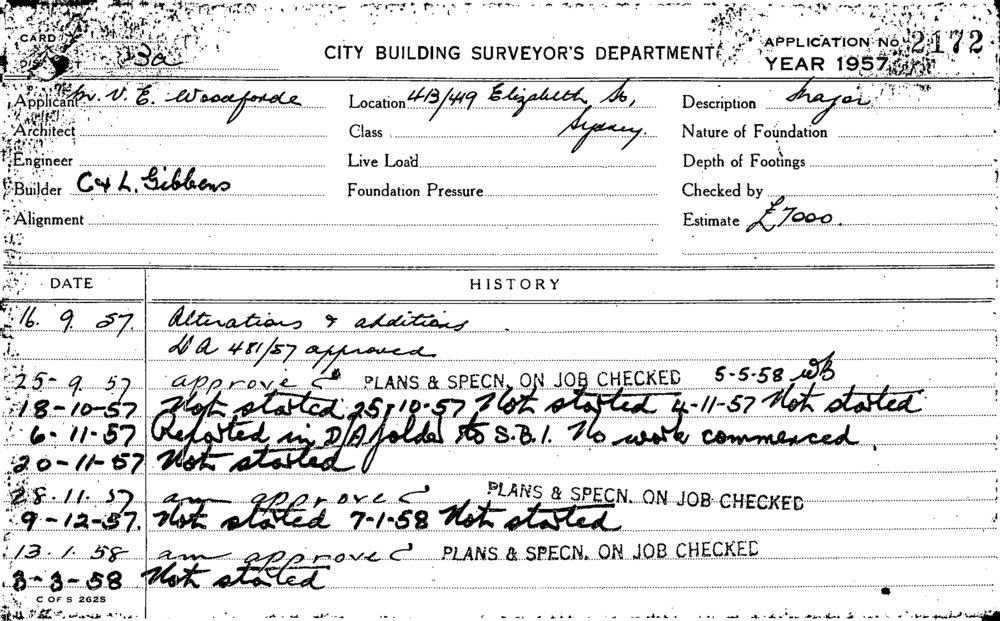 CARD
3a
CITY BUILDING SURVEYOR'S DEPARTMENT
APPLICATION No. 2172
YEAR 1957
Applicant Mr. V. E. Woodforde
Location 413/419 Elizabeth St,
Sydney.
Description
Architect
Class
Nature of Foundation
Engineer
Live Load
Depth of Footings
Builder C & L. Gibbens
Foundation Pressure
Checked by
Alignment
Estimate £7000.
DATE HISTORY
16. 9. 57. Alterations & additions
DA 481/57 approved
25-9. 57 approve PLANS & SPECN. ON JOB CHECKED 5-5-58
18-10-57 Not started 25-10-57 Not started 4-11-57 Not started
6-11-57 Reported in D/A folder to S.B.I. No work commenced
20-11-57 Not started
28.11.57 am approve PLANS & SPECN. ON JOB CHECKED
9-12-57. Not started 7-1-58 Not started
13.1.58 am approve PLANS & SPECN. ON JOB CHECKED
3-3-58 Not started
C OF S 2625